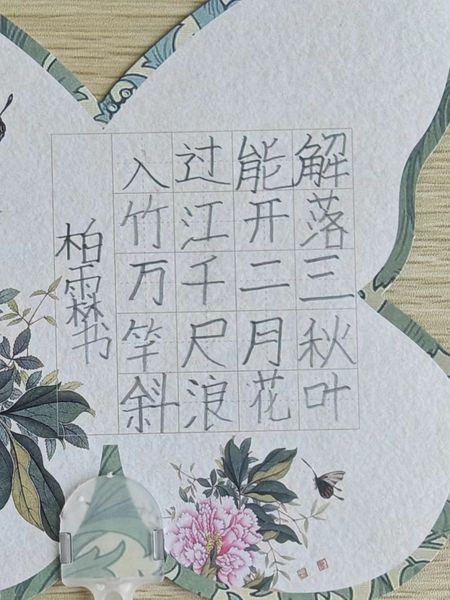 解落三秋叶
能开二月花
过江千尺浪
入竹万竿斜
柏霖书